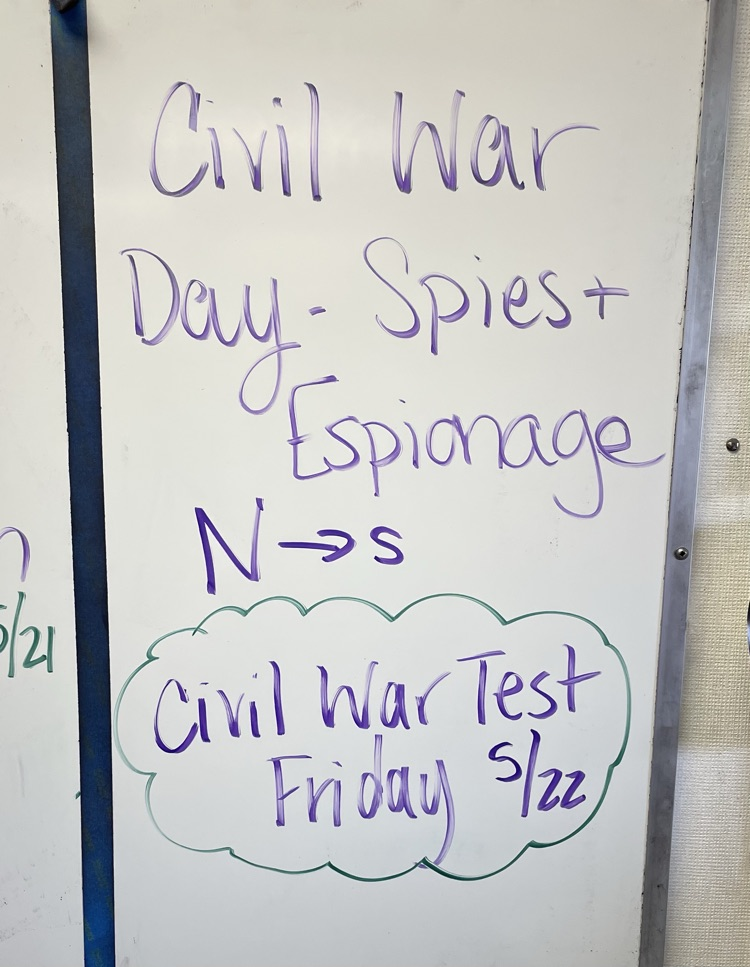 Civil War
Day - Spies +
Espionage
N → s
Civil War Test
Friday 5/22
5/21